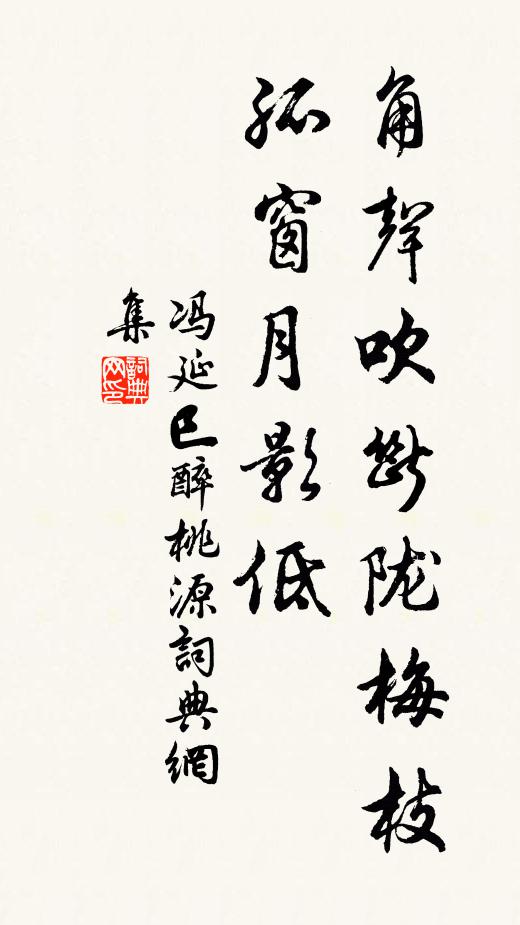 角聲吹斷陇梅枝
孤窗月影低
冯延巳醉桃源詞典網
集
詞典
网印